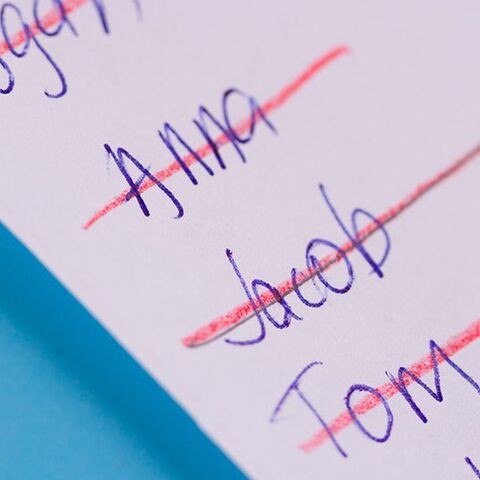 Anna
Jacob
Tom